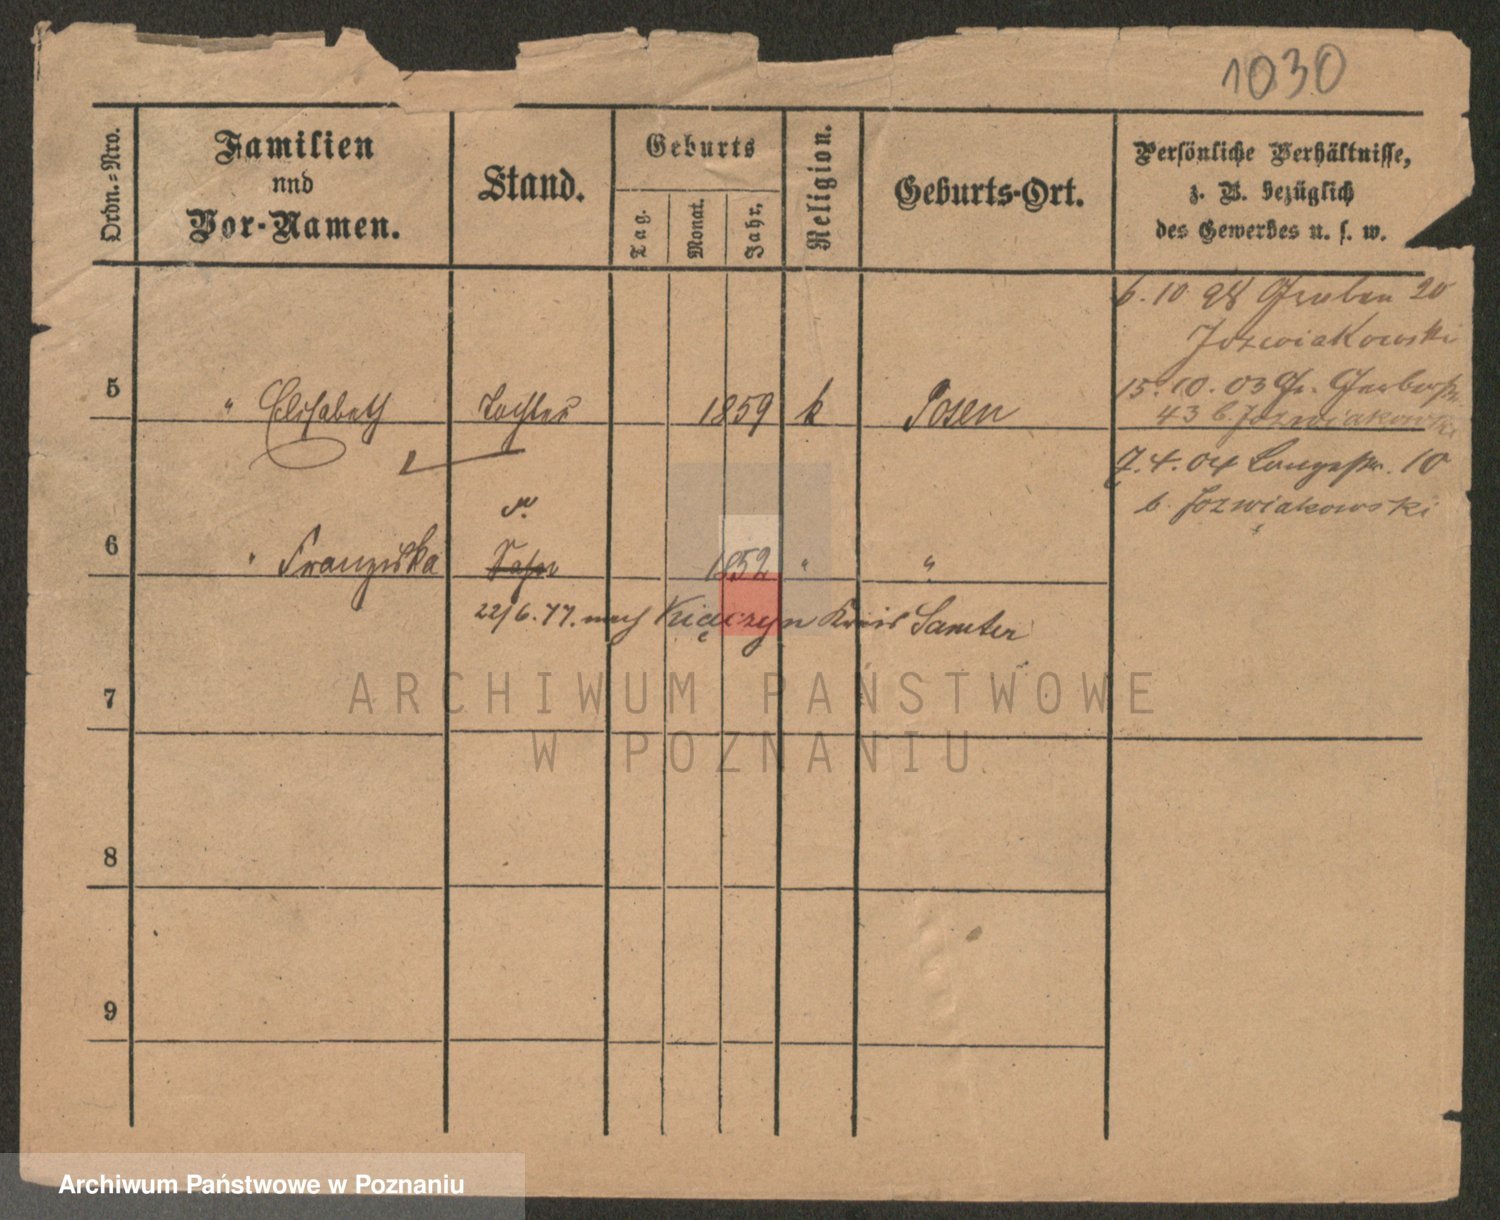 1030
Ordn.-Nro.
Familien
nnd
Vor-Namen.
Stand.
Geburts
Tag.
Monat.
Jahr.
Religion.
Geburts-Ort.
Persönliche Verhältnisse,
z. B. bezüglich
des Gewerbes u. s. w.
6. 10 98 Graben 20
Jozwiakowski
15. 10. 03 Gr. Gerberstr.
43 b. Jozwiakowski
7. 4. 04 Langestr. 10
b. Jozwiakowski
5 " Elisabeth Tochter 1859 k Posen
6 " Franziska 1852 " "
22/6. 77. nach Kiączyn Kreis Samter
7
8
9
ARCHIWUM PAŃSTWOWE
W POZNANIU
Archiwum Państwowe w Poznaniu